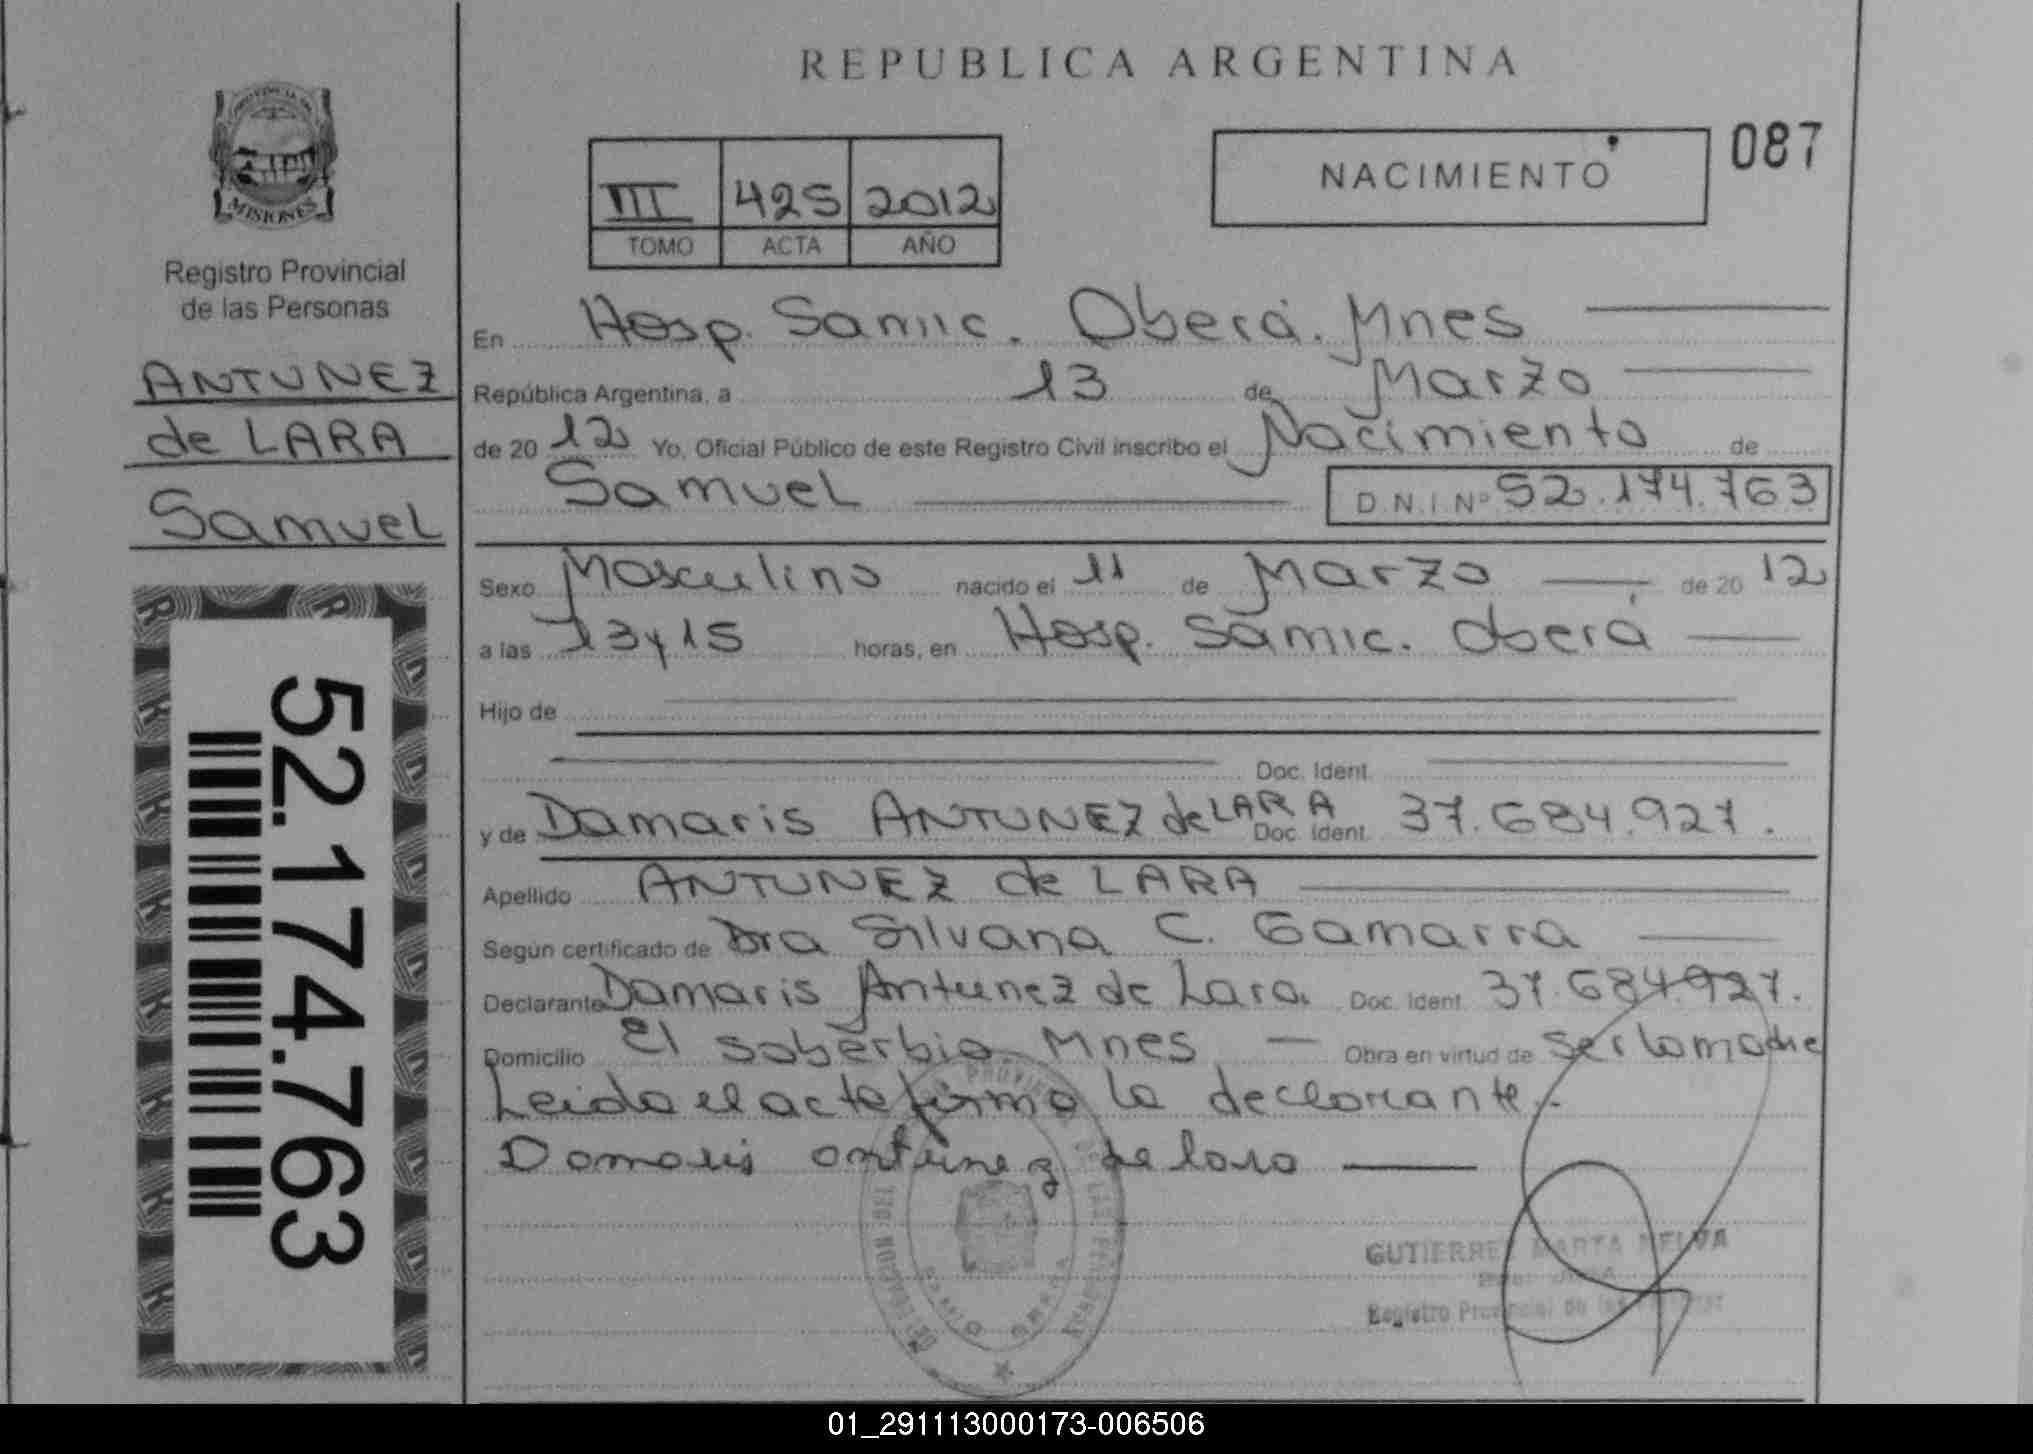 REPUBLICA ARGENTINA
NACIMIENTO
087
III 425 2012
TOMO ACTA AÑO
MISIONES
Registro Provincial
de las Personas
ANTUNEZ
de LARA
Samuel
52.174.763
En Hosp. Samic. Oberá. Mnes
República Argentina, a 13 de Marzo
de 2012 Yo, Oficial Público de este Registro Civil inscribo el Nacimiento de
Samuel D.N.I Nº 52.174.763
Sexo Masculino nacido el 11 de Marzo de 2012
a las 13y15 horas, en Hosp. Samic. Oberá
Hijo de
Doc. Ident.
y de Damaris ANTUNEZ de LARA Doc. Ident. 37.684.927.
Apellido ANTUNEZ de LARA
Según certificado de Dra Silvana C. Gamarra
Declarante Damaris Antunez de Lara Doc. Ident. 37.684.927.
Domicilio El soberbio. Mnes — Obra en virtud de ser la madre
Leida el acta firma la declarante.-
Damaris antunez de lara
GUTIERREZ MARTA NELVA
Registro Provincial de las
01_291113000173-006506